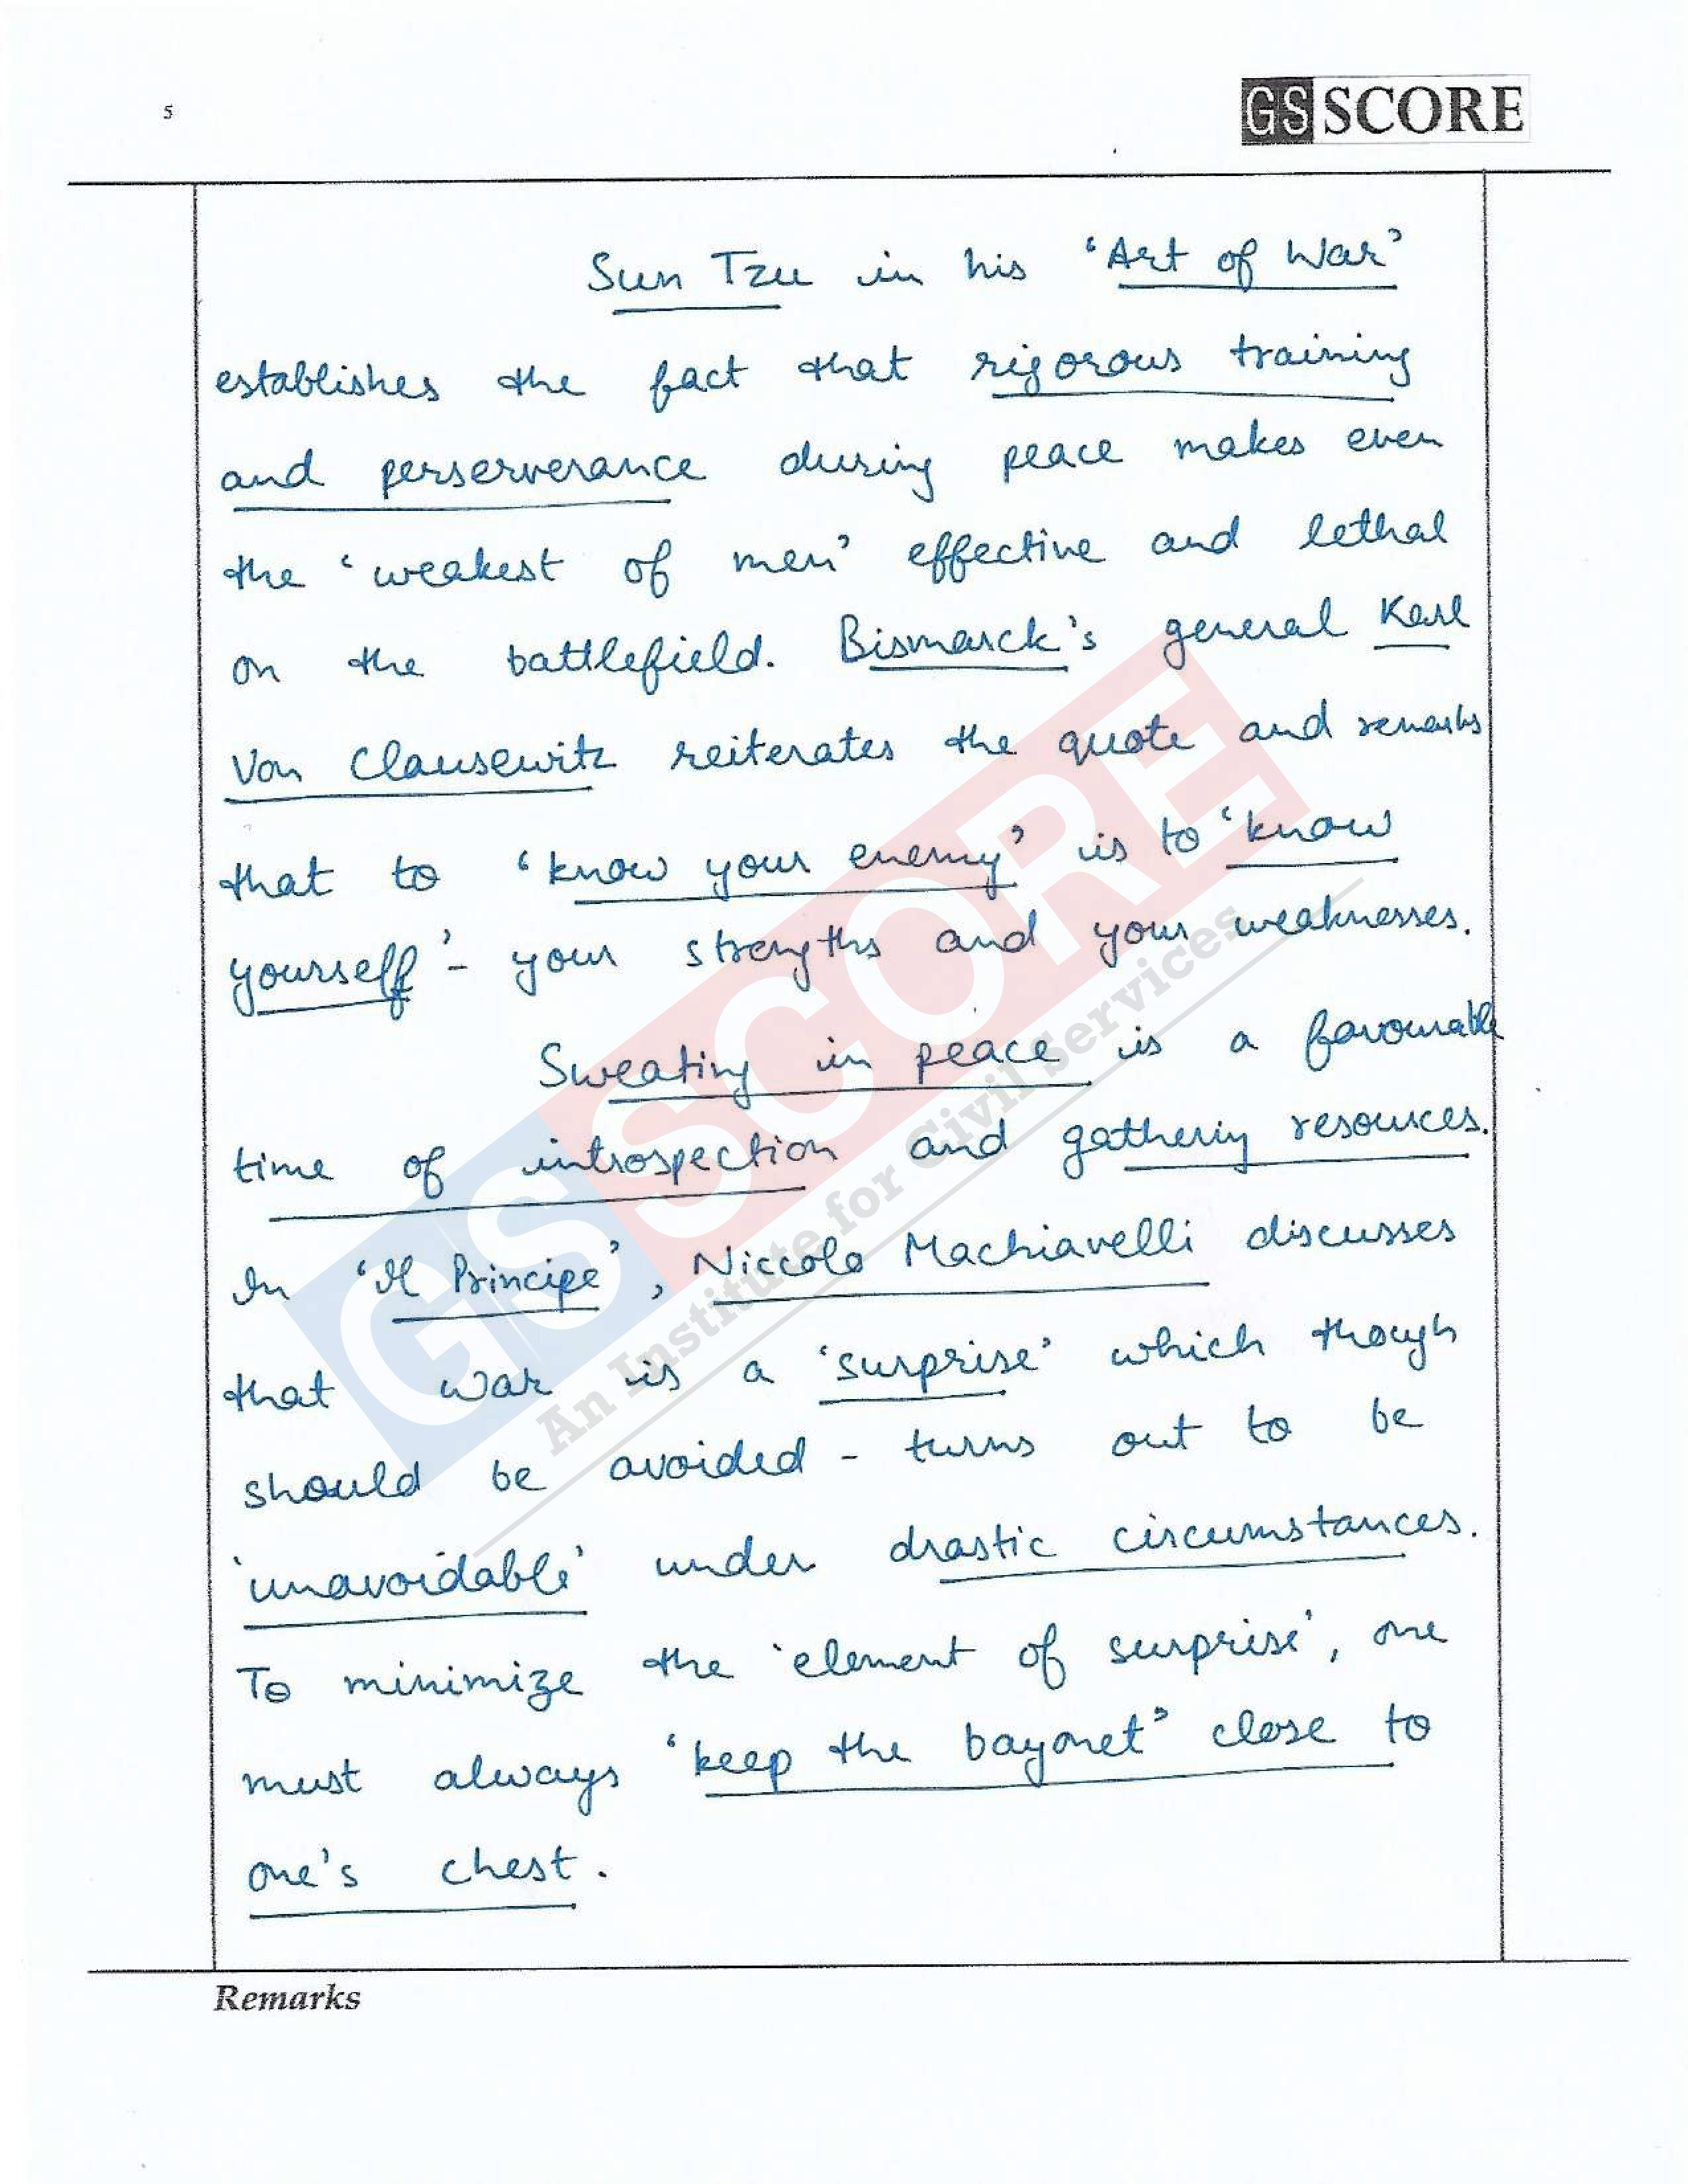 5
GS SCORE
Sun Tzu in his 'Art of War'
establishes the fact that rigorous training
and perserverance during peace makes even
the 'weakest of men' effective and lethal
on the battlefield. Bismarck's general Karl
Von Clausewitz reiterates the quote and remarks
that to 'know your enemy' is to 'know
yourself' - your strengths and your weaknesses.
Sweating in peace is a favourable
time of introspection and gathering resources.
In 'Il Principe', Niccolo Machiavelli discusses
that war is a 'surprise' which though
should be avoided - turns out to be
'unavoidable' under drastic circumstances.
To minimize the 'element of surprise', one
must always 'keep the bayonet' close to
one's chest.
Remarks
GSSCORE
An Institute for Civil Services